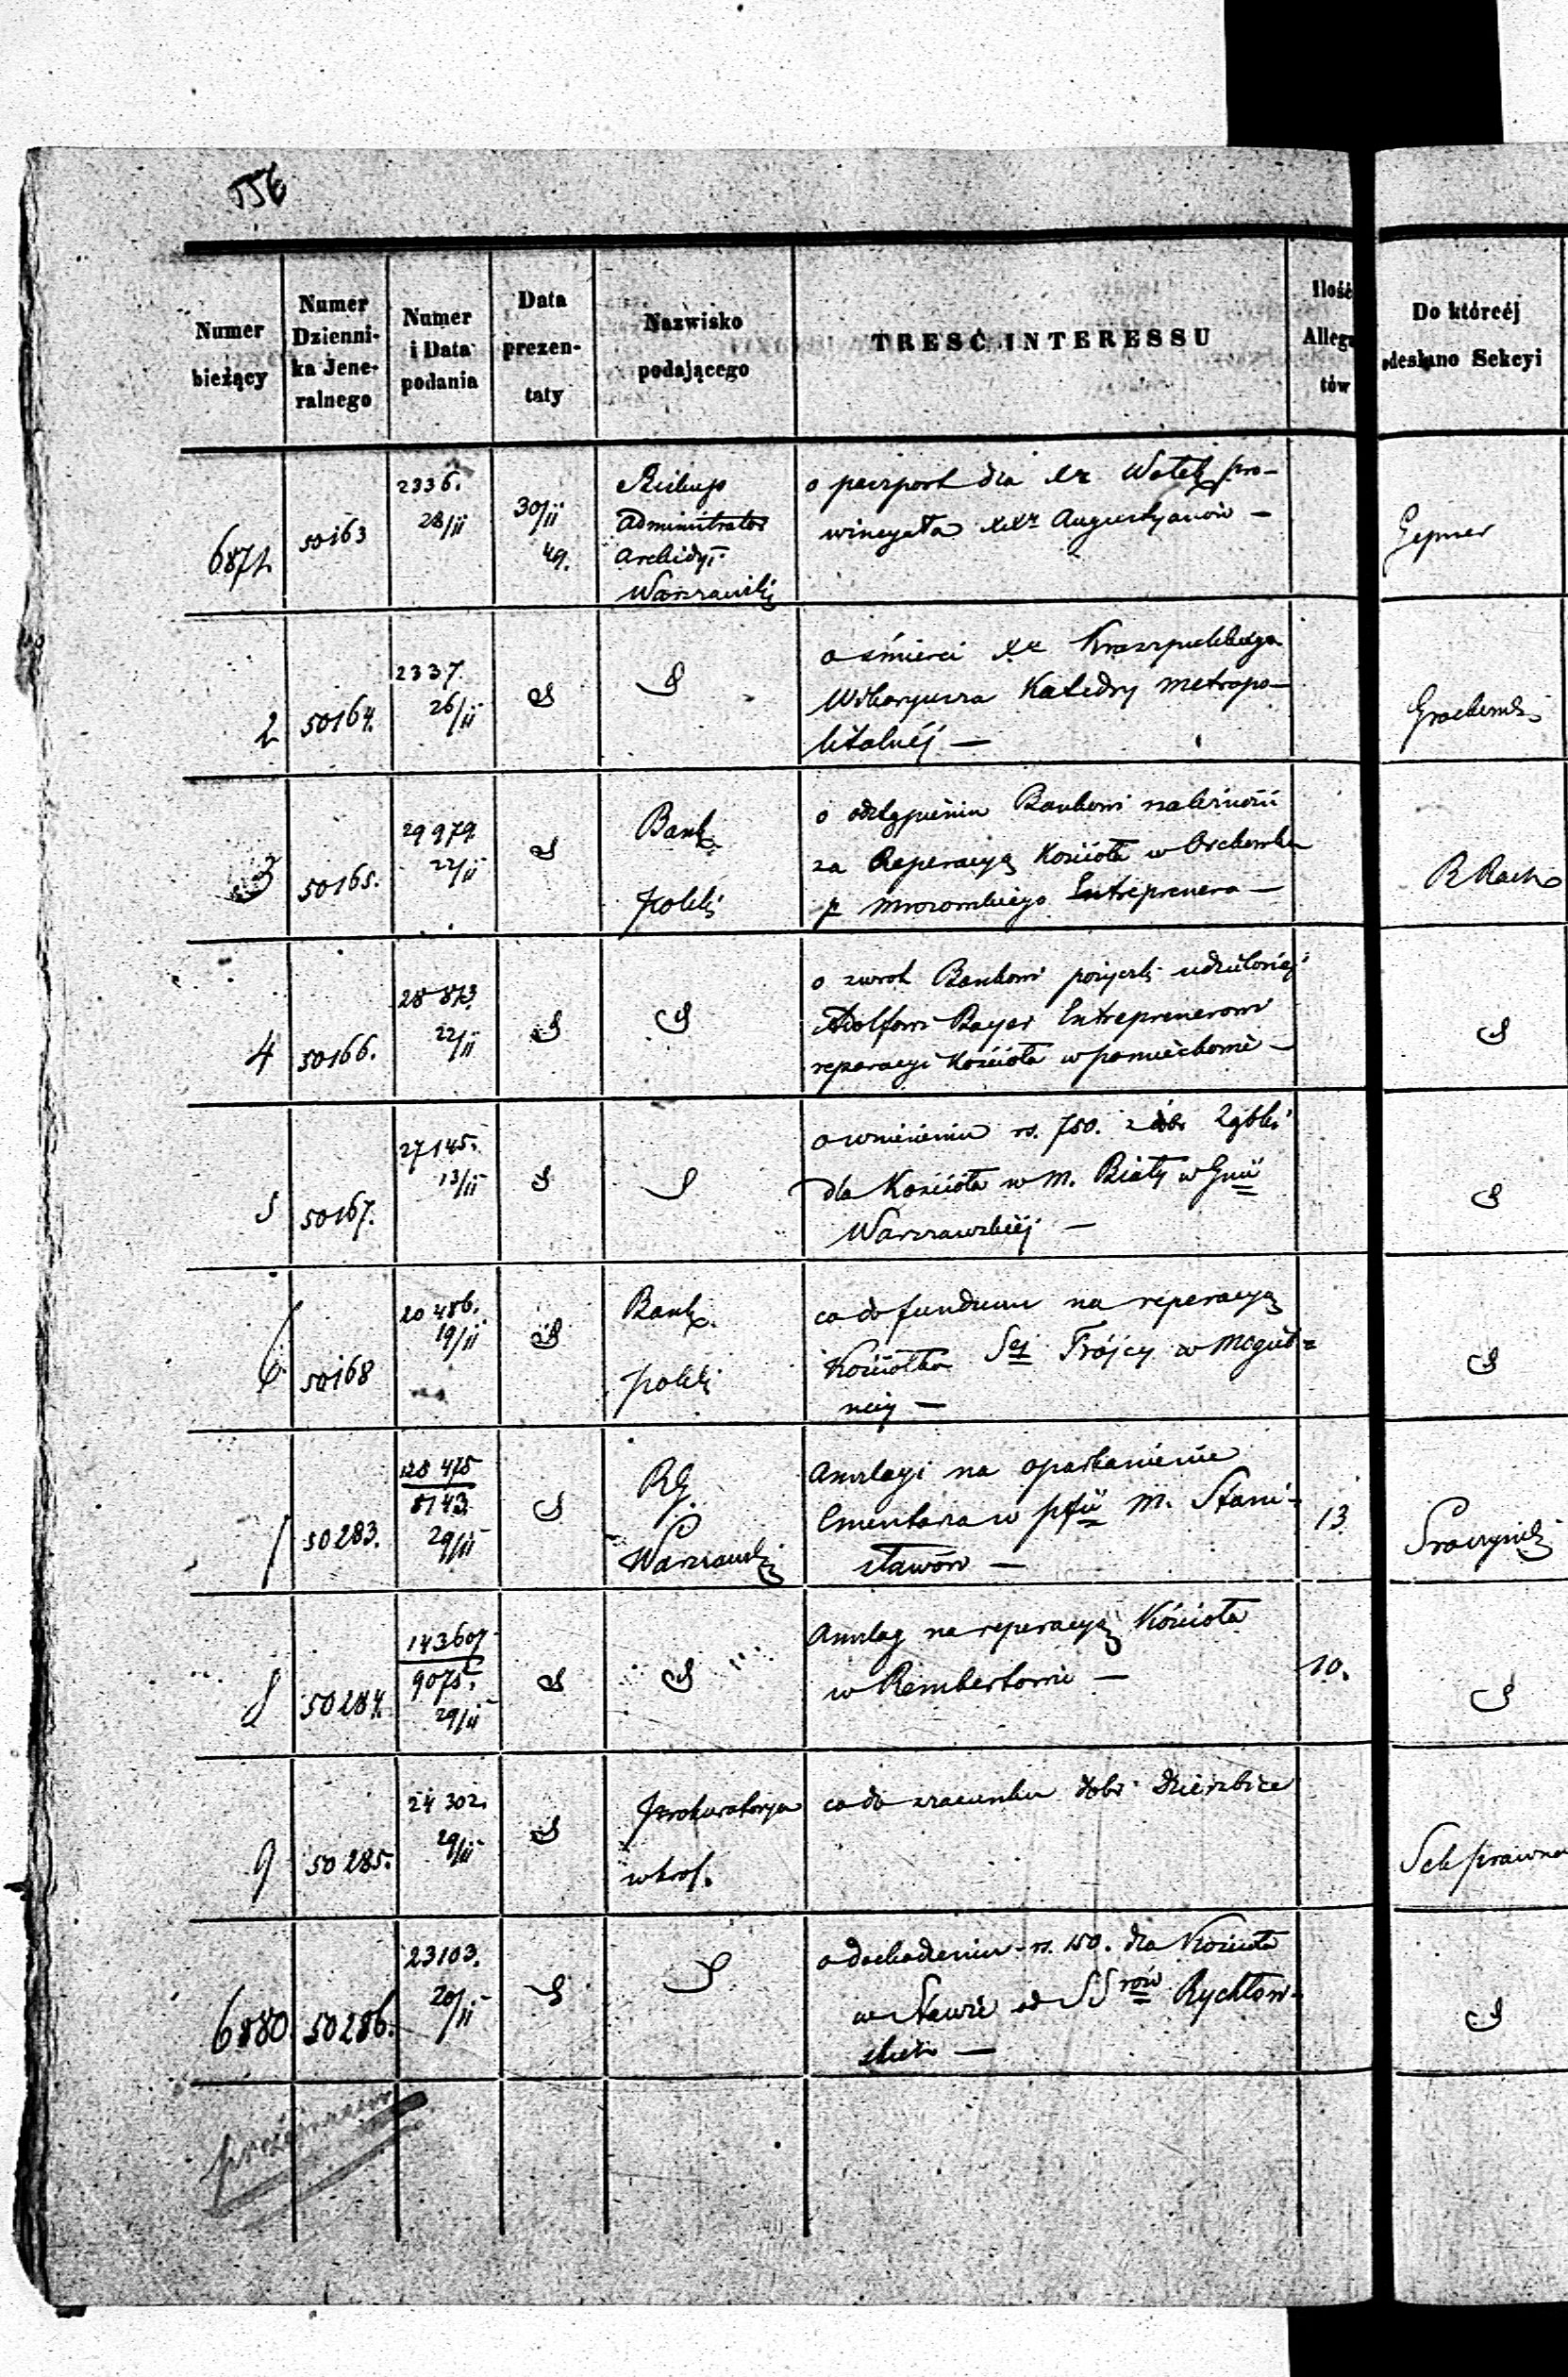 556
Numer bieżący
Numer Dzienni-ka Jene-ralnego
Numer i Data podania
Data prezen-taty
Nazwisko podającego
TRESĆ INTERESSU
Ilość Allega tów
Do któréj odesłano Sekcyi
6871
50163
2336.
28/11
30/11
49.
Biskup
Administrator
Archidyi.
Warszawski
o paszport dla Xa Watek pro-
wincyała XXr Augustyanów —
Gepner
2
50164.
2337.
26/11
o śmierci Xa
Wikaryusza Katedry metropo-
litalnéj —
3
50165.
29979.
22/11
Bank
Polski
o odstąpieniu Bankowi należności
za Reperacyą Kościoła w
p Mrozowskiego Entreprenera —
4
50166.
28 873.
22/11
o zwrot Bankowi pożyczki udzieloney
Adolfowi Bayer Entreprenerowi
reparacyi Kościoła w pomiechowie —
5
50167.
27145.
13/11
o wniesieniu rs. 750. z dóbr
dla Kościoła w m. Biały w Gnii
Warszawskiéj —
6
50168
20 486.
19/11
Bank
polski
co do funduszu na reperacyą
Kościołka Sej Trójcy w Mogiel-
nicy —
7
50283.
128 475
8143.
29/11
RG.
Warszawski
Anszlagi na oparkanienie
Cmentarza w pfii m. Stani-
sławów —
13
8
50284.
143607
9075.
29/11
Anszlag na reperacyą Kościoła
w Rembertowie —
10.
9
50285.
24 302.
29/11
Prokuratorya
w krol.
co do szacunku dóbr Dzierzbice
Sek prawna
6880.
50286.
23103.
20/11
o dochodzeniu rs. 150. dla Kościoła
w od SSrów Rychłow-
skich —